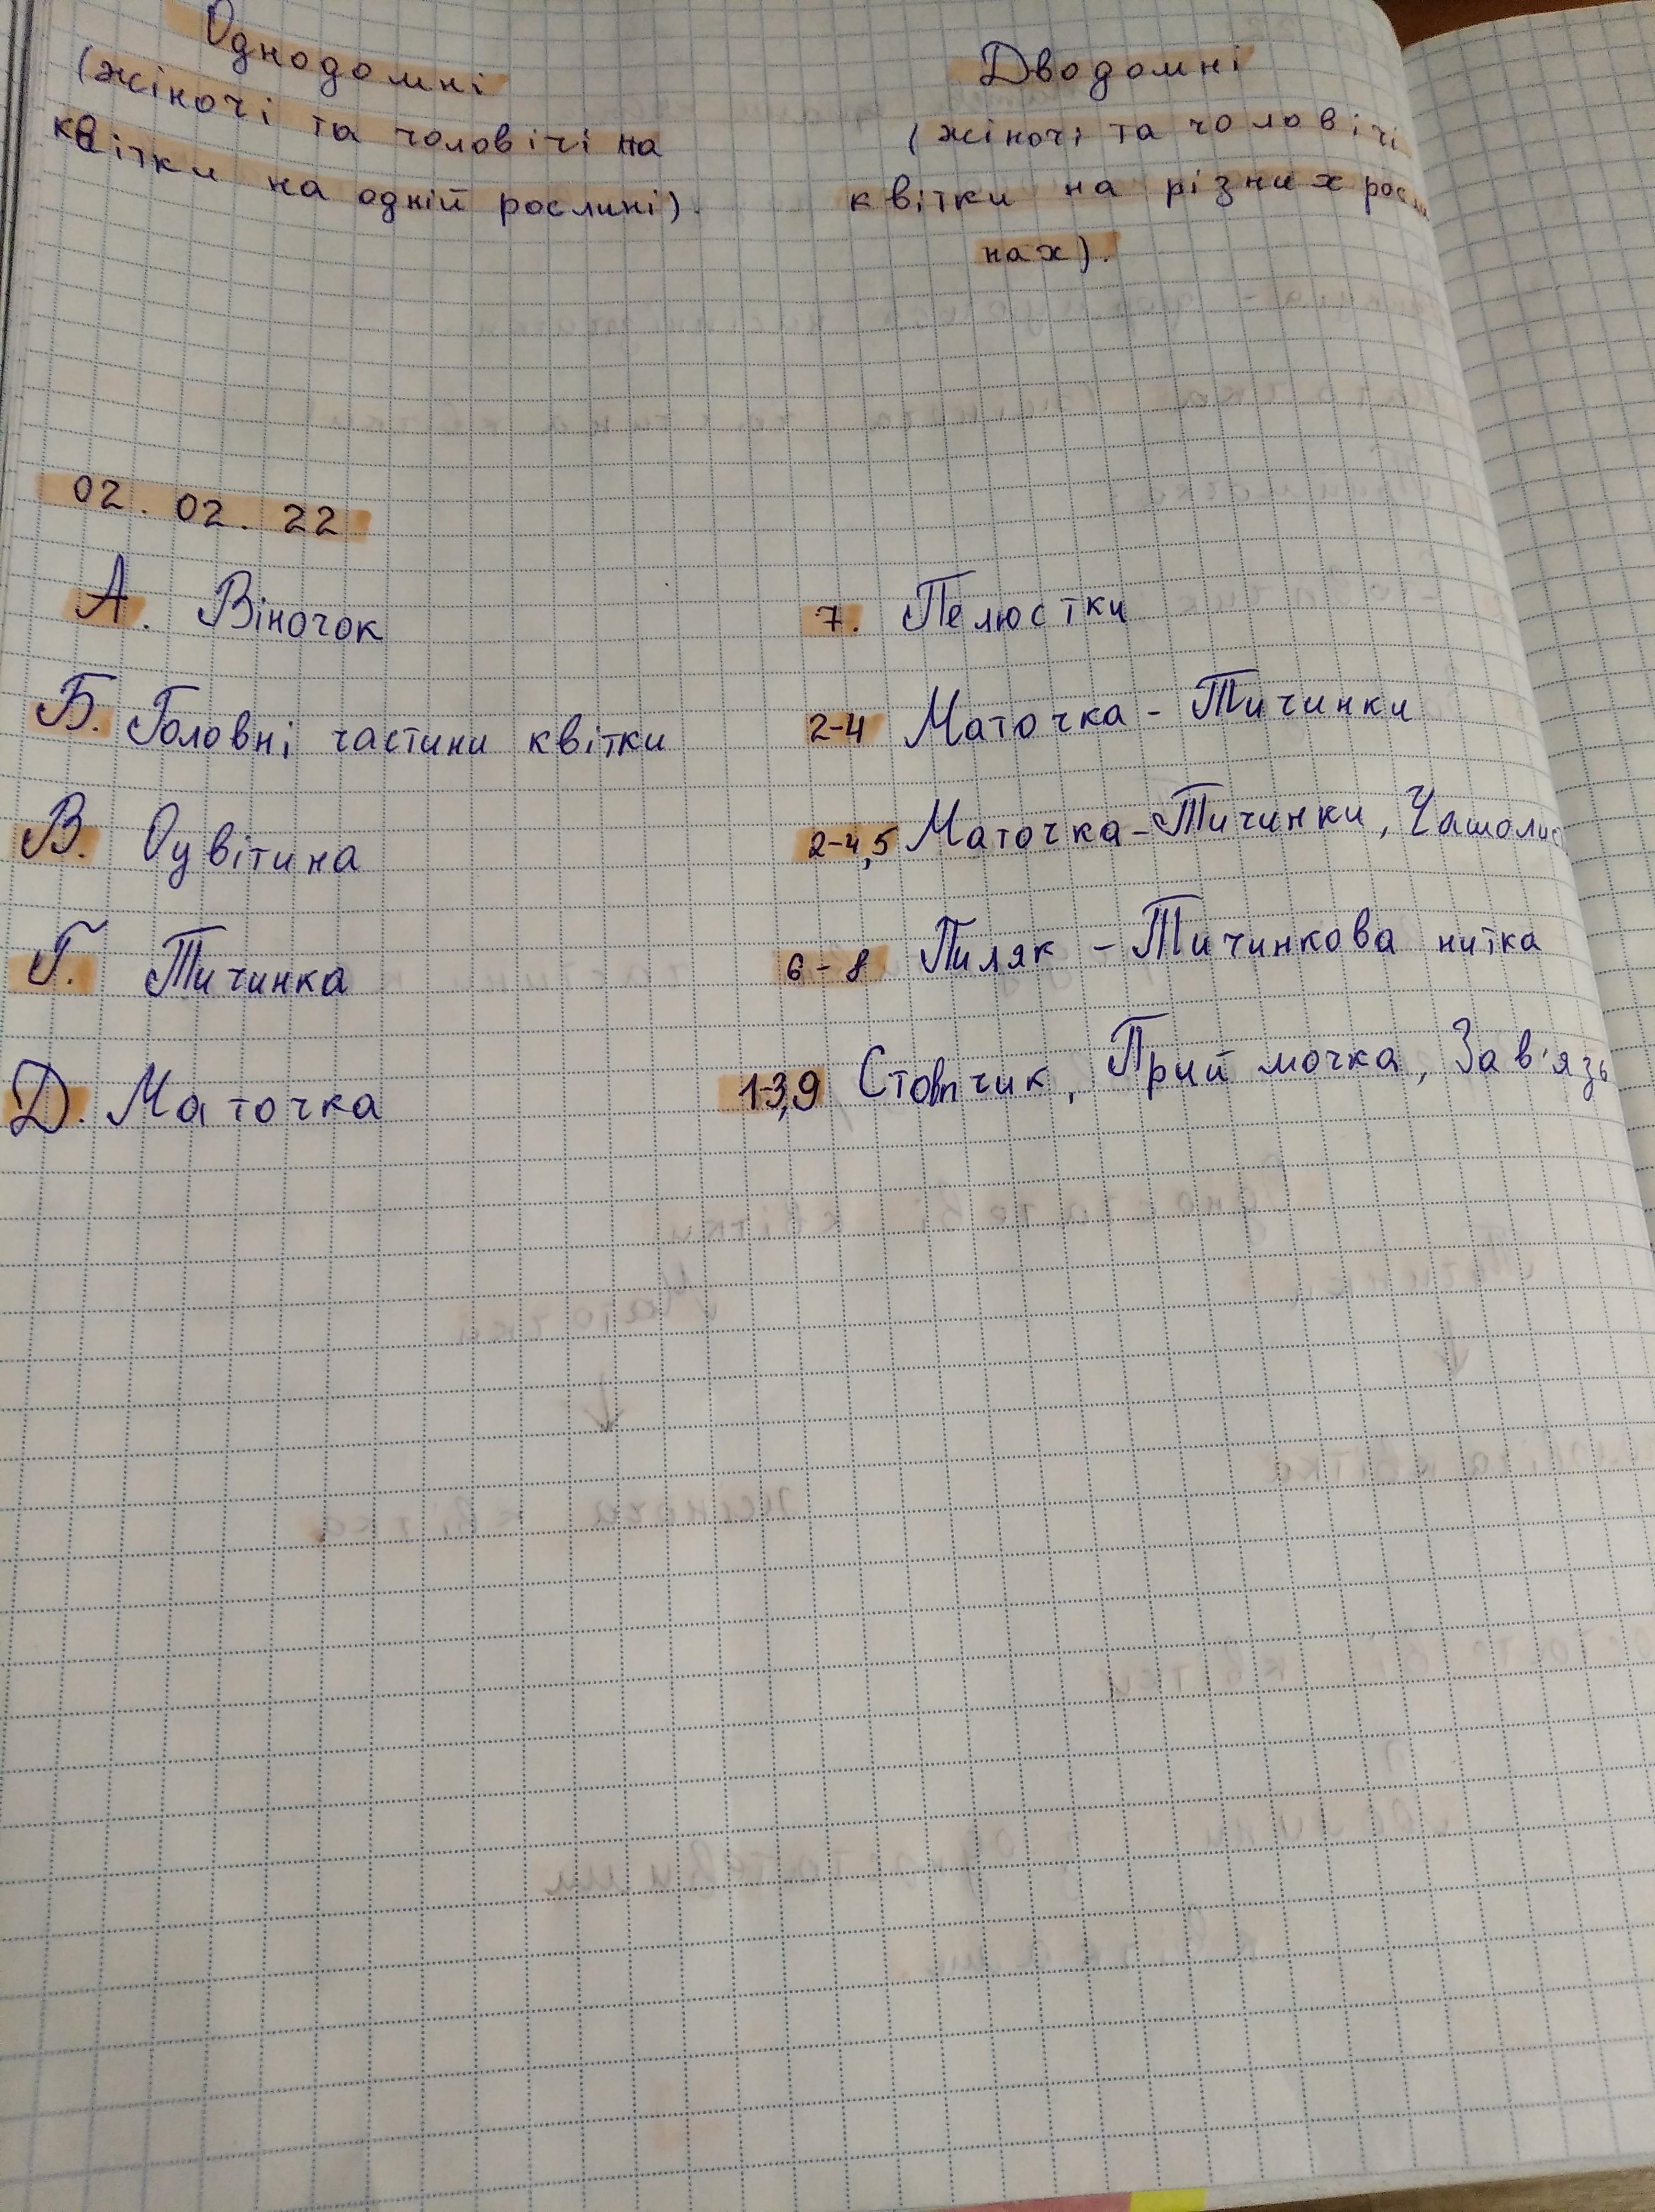 Однодомні
(жіночі та чоловічі на
квітки на одній рослині).
Дводомні
(жіночі та чоловічі
квітки на різних росли
нах).
02.02.22
А. Віночок
7. Пелюстки
Б. Головні частини квітки
2-4 Маточка - Тичинки
В. Оцвітина
2-4,5 Маточка-Тичинки, Чашолис
Г. Тичинка
6-8 Пиляк - Тичинкова нитка
Д. Маточка
1-3,9 Стовпчик, Приймочка, Зав'язь